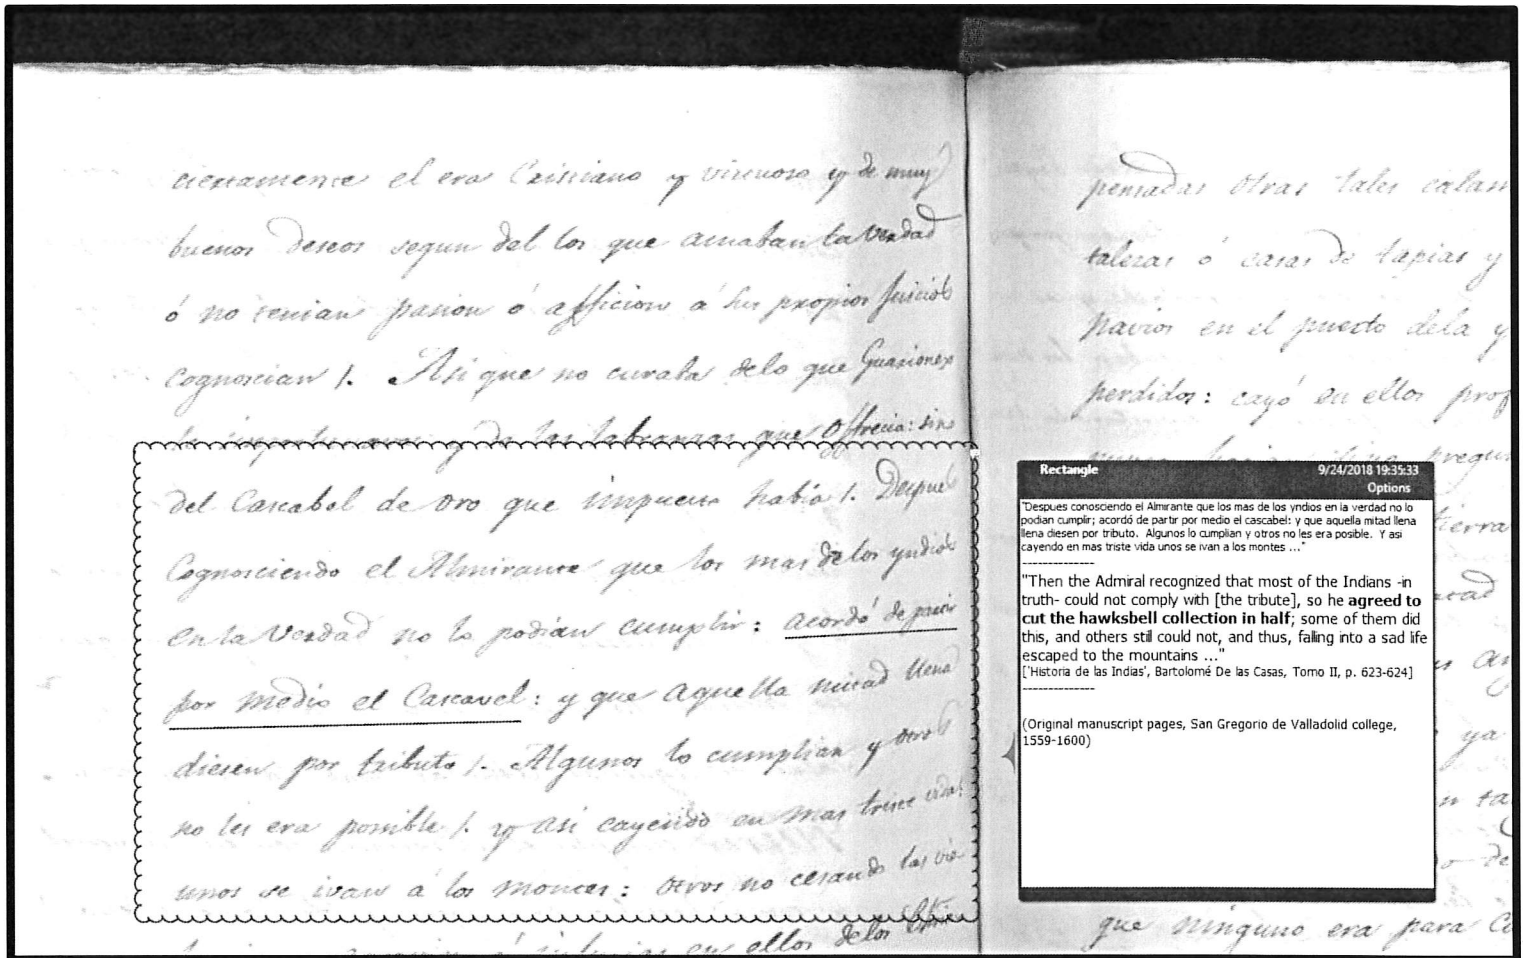 ciertamente el era Cristiano y virtuoso y de muy
buenos deseos segun del los que amaban la verdad
ó no tenian pasion ó afficion á sus propios juicios
cognoscian /. Asi que no curaba delo que Guarionex
y de las labranzas que offrecia: sino
del Cascabel de oro que impuesto habia /. Despues
Cognosciendo el Almirante que los mas delos yndios
en la Verdad no lo podian cumplir: acordó de partir
por medio el Cascavel: y que aquella mitad llena
diesen por tributo /. Algunos lo cumplian y otros
no les era posible /. y asi cayendo en mas triste vida:
unos se ivan á los montes: otros no cesando las vio
en ellos delos
pensadas otras tales calam
talezas ó casas de tapias y
navios en el puerto dela y
perdidos: cayó en ellos prof
pregun
tierra
ya
que ninguno era para
Rectangle 9/24/2018 19:35:33
Options
"Despues conosciendo el Almirante que los mas de los yndios en la verdad no lo
podian cumplir; acordó de partir por medio el cascabel: y que aquella mitad llena
llena diesen por tributo. Algunos lo cumplian y otros no les era posible. Y asi
cayendo en mas triste vida unos se ivan a los montes ..."
--------------
"Then the Admiral recognized that most of the Indians -in
truth- could not comply with [the tribute], so he agreed to
cut the hawksbell collection in half; some of them did
this, and others still could not, and thus, falling into a sad life
escaped to the mountains ..."
['Historia de las Indias', Bartolomé De las Casas, Tomo II, p. 623-624]
--------------
(Original manuscript pages, San Gregorio de Valladolid college,
1559-1600)